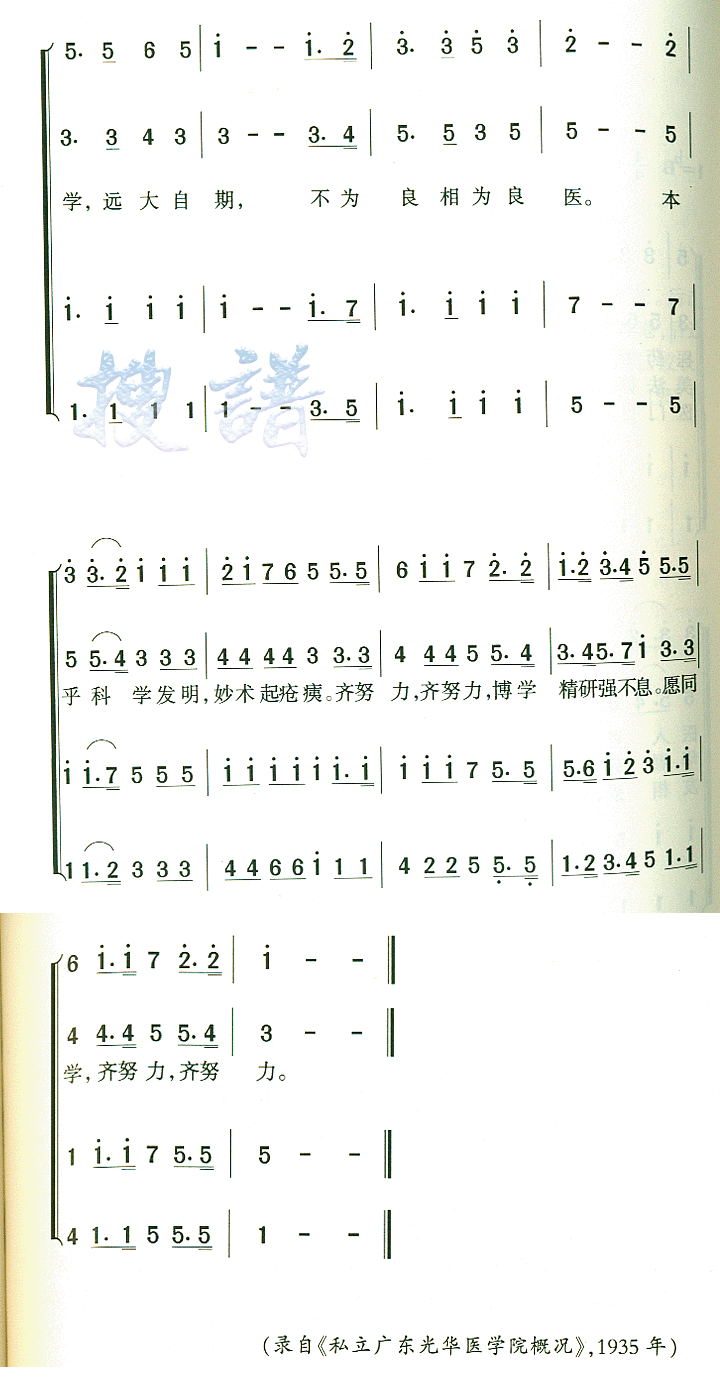 5. 5 6 5 | i - - i. 2 | 3. 3 5 3 | 2 - - 2 |
3. 3 4 3 | 3 - - 3. 4 | 5. 5 3 5 | 5 - - 5 |
学,远大自期, 不为良相为良医。 本
i. i i i | i - - i. 7 | i. i i i | 7 - - 7 |
搜谱
1. 1 1 1 | 1 - - 3. 5 | i. i i i | 5 - - 5 |
3 3. 2 i i i | 2 i 7 6 5 5. 5 | 6 i i 7 2. 2 | i. 2 3. 4 5 5. 5 |
5 5. 4 3 3 3 | 4 4 4 4 3 3. 3 | 4 4 4 5 5. 4 | 3. 4 5. 7 i 3. 3 |
乎科学发明,妙术起疮痍。齐努力,齐努力,博学精研强不息。愿同
i i. 7 5 5 5 | i i i i i i. i | i i i 7 5. 5 | 5. 6 i 2 3 i. i |
1 1. 2 3 3 3 | 4 4 6 6 i 1 1 | 4 2 2 5 5. 5 | 1. 2 3. 4 5 1. 1 |
6 i. i 7 2. 2 | i - - ‖
4 4. 4 5 5. 4 | 3 - - ‖
学,齐努力,齐努力。
1 i. i 7 5. 5 | 5 - - ‖
4 1. 1 5 5. 5 | 1 - - ‖
(录自《私立广东光华医学院概况》,1935年)